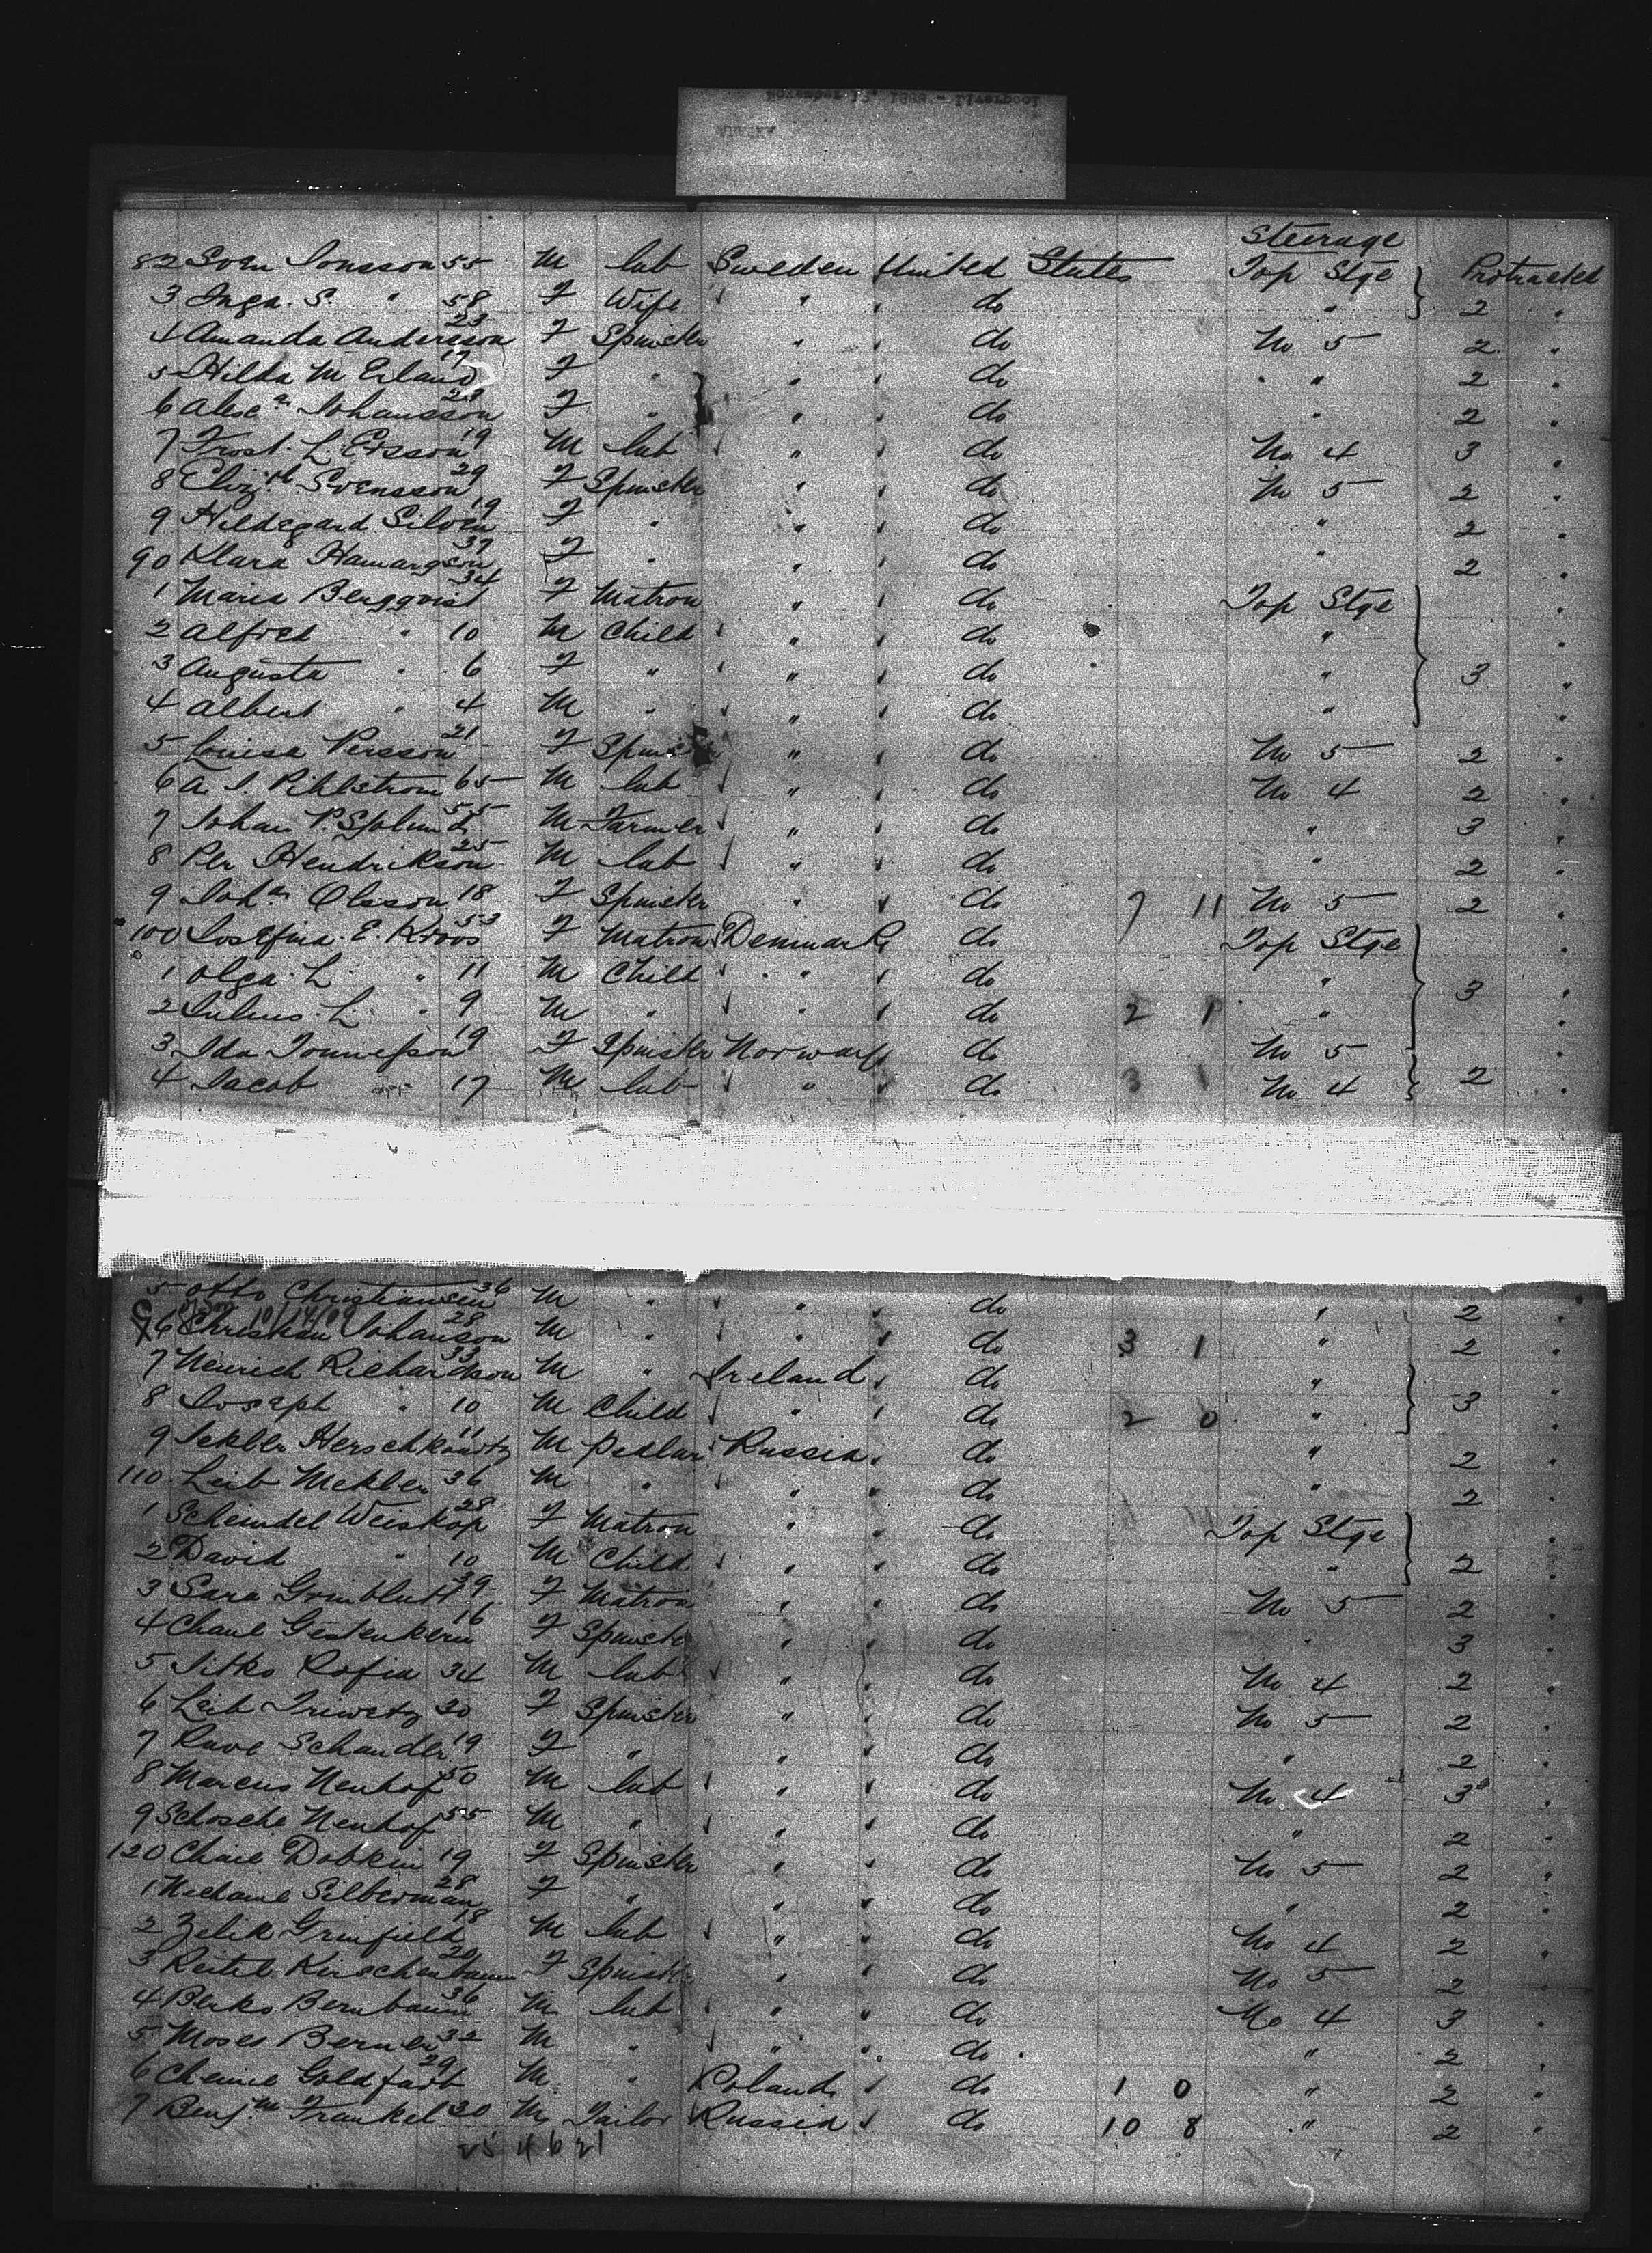 Steerage
82 Sven Jonsson 55 M lab Sweden United States Top Stge Protracted
3 Inga. S. " 58 F Wife " " do " 2 "
4 Amanda Andersson 23 F Spinster " " do No 5 2 "
5 Hilda M Erland 17 F " " " do " 2 "
6 Alexa Johansson 23 F " " " do " 2 "
7 Frost. L. Ersson 19 M lab " " do No 4 3 "
8 Elizth Svensson 29 F Spinster " " do No 5 2 "
9 Hildegard Silven 19 F " " " do " 2 "
90 Klara 37 F " " " do " 2 "
1 Maria Bergqvist 34 F Matron " " do Top Stge "
2 Alfred " 10 M Child " " do " "
3 Augusta " 6 F " " " do " 3 "
4 Albert " 4 M " " " do " "
5 Louisa Persson 21 F Spinster " " do No 5 2 "
6 A. J. Pihlstrom 65 M lab " " do No 4 2 "
7 Johan P. 55 M Farmer " " do " 3 "
8 Per Hendrikson 25 M lab " " do " 2 "
9 Joha Olsson 18 F Spinster " " do 7 11 No 5 2 "
100 Josefina. E. Kroos 53 F Matron Denmark do Top Stge "
1 Olga. L " 11 M Child " " do " 3 "
2 Julius. L. " 9 M " " " do 2 1 " "
3 Ida 19 F Spinster Norway do No 5 "
4 Jacob 17 M lab " " do 3 1 No 4 2 "
5 Otto Christiansen 36 M " " " do " 2 "
10/14/09
6 Christian Johanson 28 M " " " do 3 1 " 2 "
7 Heinrich Richardson 33 M " Ireland " do " "
8 Joseph " 10 M Child " " do 2 0 " 3 "
9 Herschkowitz 11 M pedlar Russia " do " 2 "
110 Leib Mekler 36 M " " " do " 2 "
1 Scheindel Weiskop 28 F Matron " " do Top Stge "
2 David " 10 M Child " " do " 2 "
3 Sara 39 F Matron " " do No 5 2 "
4 Chane Gestenkern 16 F Spinster " " do " 3 "
5 Rofia 34 M lab " " do No 4 2 "
6 Leib Triwetz 20 F Spinster " " do No 5 2 "
7 Schander 19 F " " " do " 2 "
8 Marcus Neuhof 50 M lab " " do No 4 3 "
9 Schosche Neuhof 55 M " " " do " 2 "
120 Chaie Dobkin 19 F Spinster " " do No 5 2 "
1 Nechame Silberman 28 F " " " do " 2 "
2 Zelik Grinfield 18 M lab " " do No 4 2 "
3 Reitel Kirschenbaum 20 F Spinster " " do No 5 2 "
4 Berko Bernbaum 36 M lab " " do No 4 3 "
5 Moses Berner 32 M " " " do " 2 "
6 Goldfarb 29 M " Poland " do 1 0 " 2 "
7 Benjm Frankel 30 M Tailor Russia " do 10 8 " 2 "